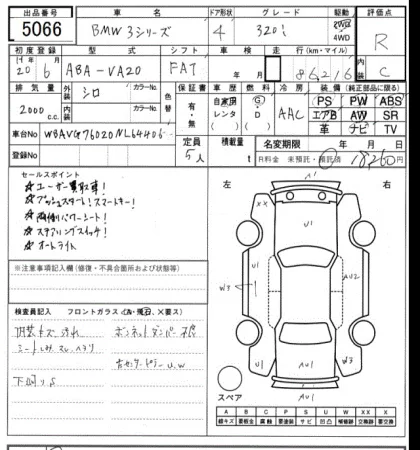 出品番号 車名 ドア形状 グレード 駆動 評価点
5066 BMW 3シリーズ 4 320i 2WD 4WD R
初度登録 型式 シフト 車検 走行(km・マイル) 内装
20 6 ABA-VA20 FAT 年 月 86,216 C
排気量 外装 シロ カラーNo. 色替 保証書 車歴 燃料 冷房 装備(純正部品に限る)
2000 c.c. 内装 カラーNo. 有・無 自家用 レンタ G D AAC PS PW ABS
エアB AW SR
革 ナビ TV
車台No WBAVG76020NL64406
定員 5人 積載量 t 名変期限 年 月 日
登録No R料金 未預託・預託済 18,260円
セールスポイント
☆ ユーザー買取車!
☆ プッシュスタート!スマートキー!
☆ 両側パワーシート!
☆ ステアリングスイッチ!
☆ オートライト
左 右
A1
XX
U1
U1 AU2
W3
U1 AU1 W3
AU1
スペア
※注意事項記入欄(修復・不具合箇所および状態等)
検査員記入 フロントガラス(A・飛石・X要ス)
内装キズ 汚れ ボンネットダンパー不良
シートしみ スレ ヘタリ
右センターピラー U,W
下廻りS
A B C P S U W X XX
線キズ 要板金 腐蝕 要塗装 サビ 凹凸 補修跡 要交換 交換済